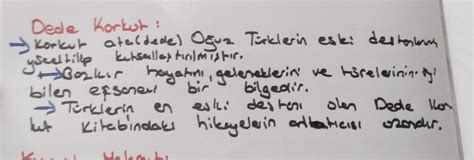 Dede Korkut :
→ Korkut ata (dede) Oğuz Türklerin eski destanlarında
yüceltilip kutsallaştırılmıştır.
→ Bozkır hayatını, geleneklerini ve törelerini iyi
bilen efsanevi bir bilgedir.
→ Türklerin en eski destanı olan Dede Kor
kut kitabındaki hikayelerin anlatıcısı ozandır.